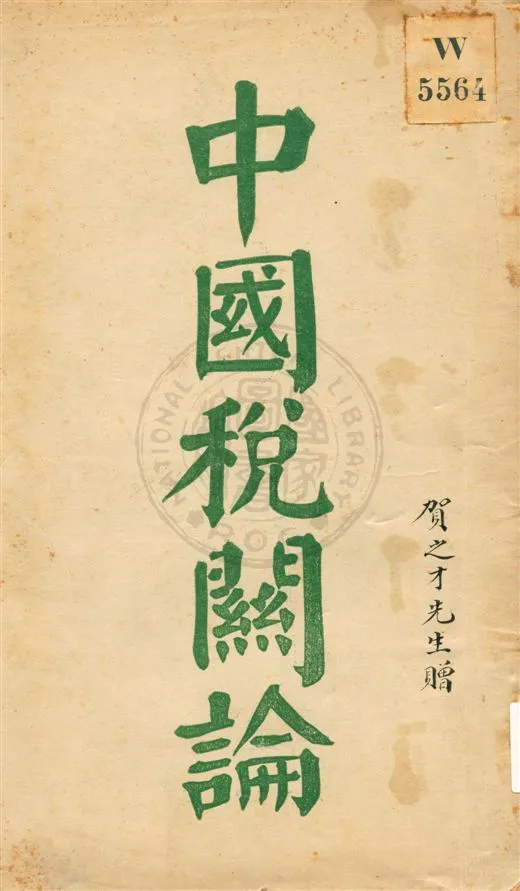 W
5564
中國税關論
賀之才先生贈
NATIONAL
LIBRARY